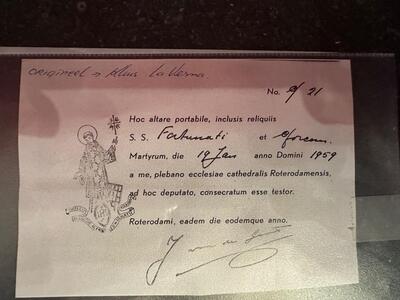 origineel → klaus La Verna
No. 9/21
Hoc altare portabile, inclusis reliquiis
S. S. Fortunati et
Martyrum, die 19 Jan anno Domini 1959
a me, plebano ecclesiae cathedralis Roterodamensis,
ad hoc deputato, consecratum esse testor.
Roterodami, eadem die eodemque anno.